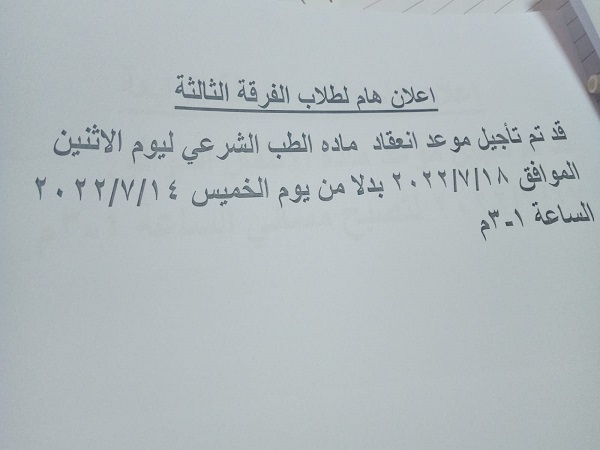 اعلان هام لطلاب الفرقة الثالثة
قد تم تأجيل موعد انعقاد ماده الطب الشرعي ليوم الاثنين
الموافق ٢٠٢٢/٧/١٨ بدلا من يوم الخميس ٢٠٢٢/٧/١٤
الساعة ١-٣م